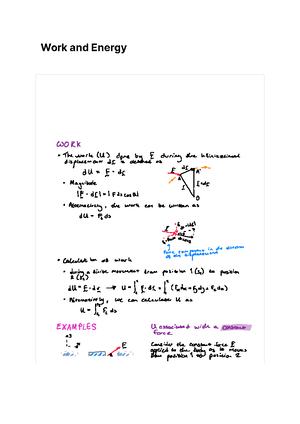 Work and Energy
WORK
• The work (U) done by F during the infinitesimal
displacement dr is defined as
dU = F · dr
• Magnitude
|F · dr| = |F ds cosα|
• Alternatively, the work can be written as
dU = Ft ds
force component in the direction
of the displacement
• Calculation of work
• during a finite movement from position 1 (s1) to position
2 (s2)
dU = F · dr → U = ∫ F · dr = ∫ (Fx dx + Fy dy + Fz dz)
• Alternatively, we can calculate U as
U = ∫ Ft ds
EXAMPLES
U associated with a constant
force
Consider the constant force F
applied to the body as it moves
from position 1 to position 2